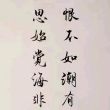 恨不如潮有
思始觉海非